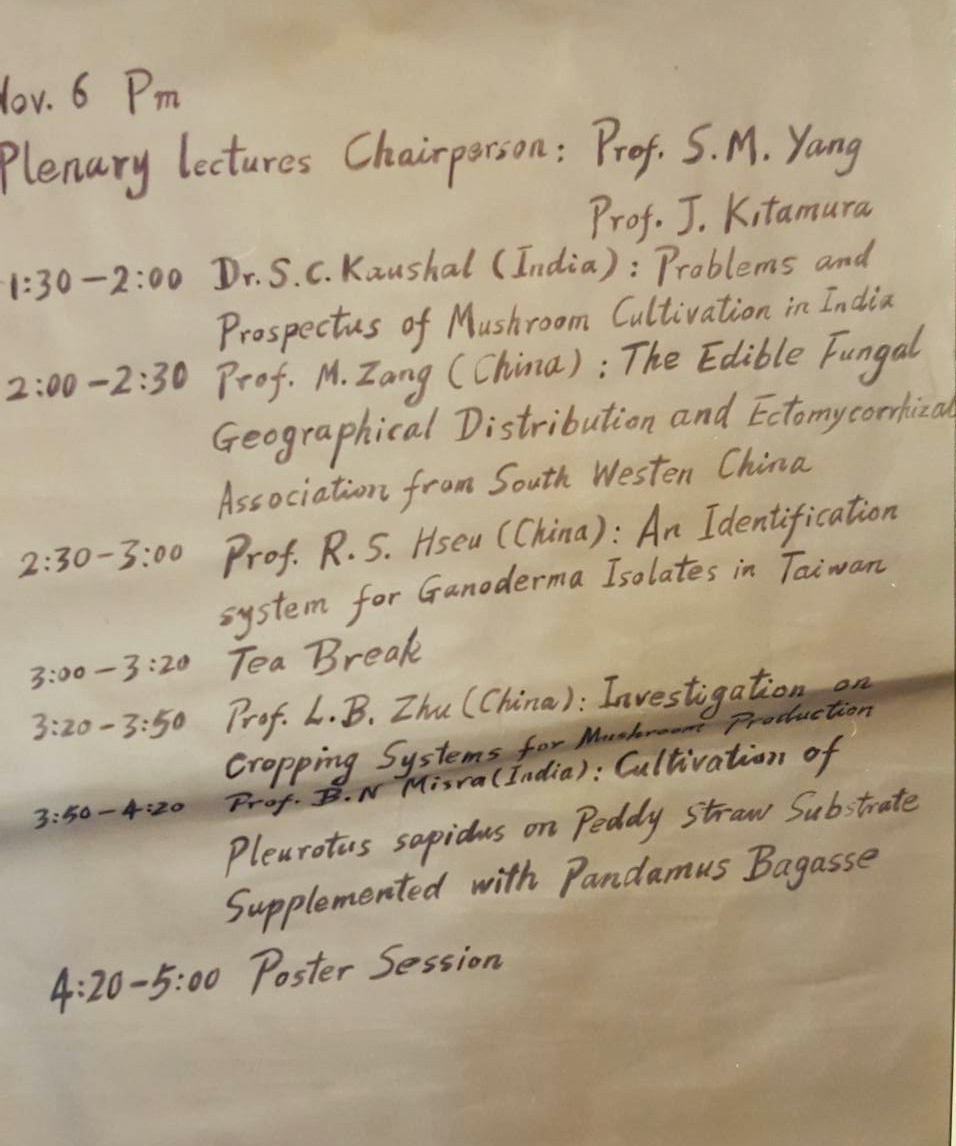 Nov. 6 Pm
Plenary lectures Chairperson: Prof. S.M. Yang
Prof. J. Kitamura
1:30-2:00 Dr. S.C. Kaushal (India): Problems and
Prospectus of Mushroom Cultivation in India
2:00-2:30 Prof. M. Zang (China): The Edible Fungal
Geographical Distribution and Ectomycorrhizal
Association from South Westen China
2:30-3:00 Prof. R.S. Hseu (China): An Identification
system for Ganoderma Isolates in Taiwan
3:00-3:20 Tea Break
3:20-3:50 Prof. L.B. Zhu (China): Investigation on
Cropping Systems for Mushroom Production
3:50-4:20 Prof. B.N Misra (India): Cultivation of
Pleurotus sapidus on Peddy Straw Substrate
Supplemented with Pandamus Bagasse
4:20-5:00 Poster Session